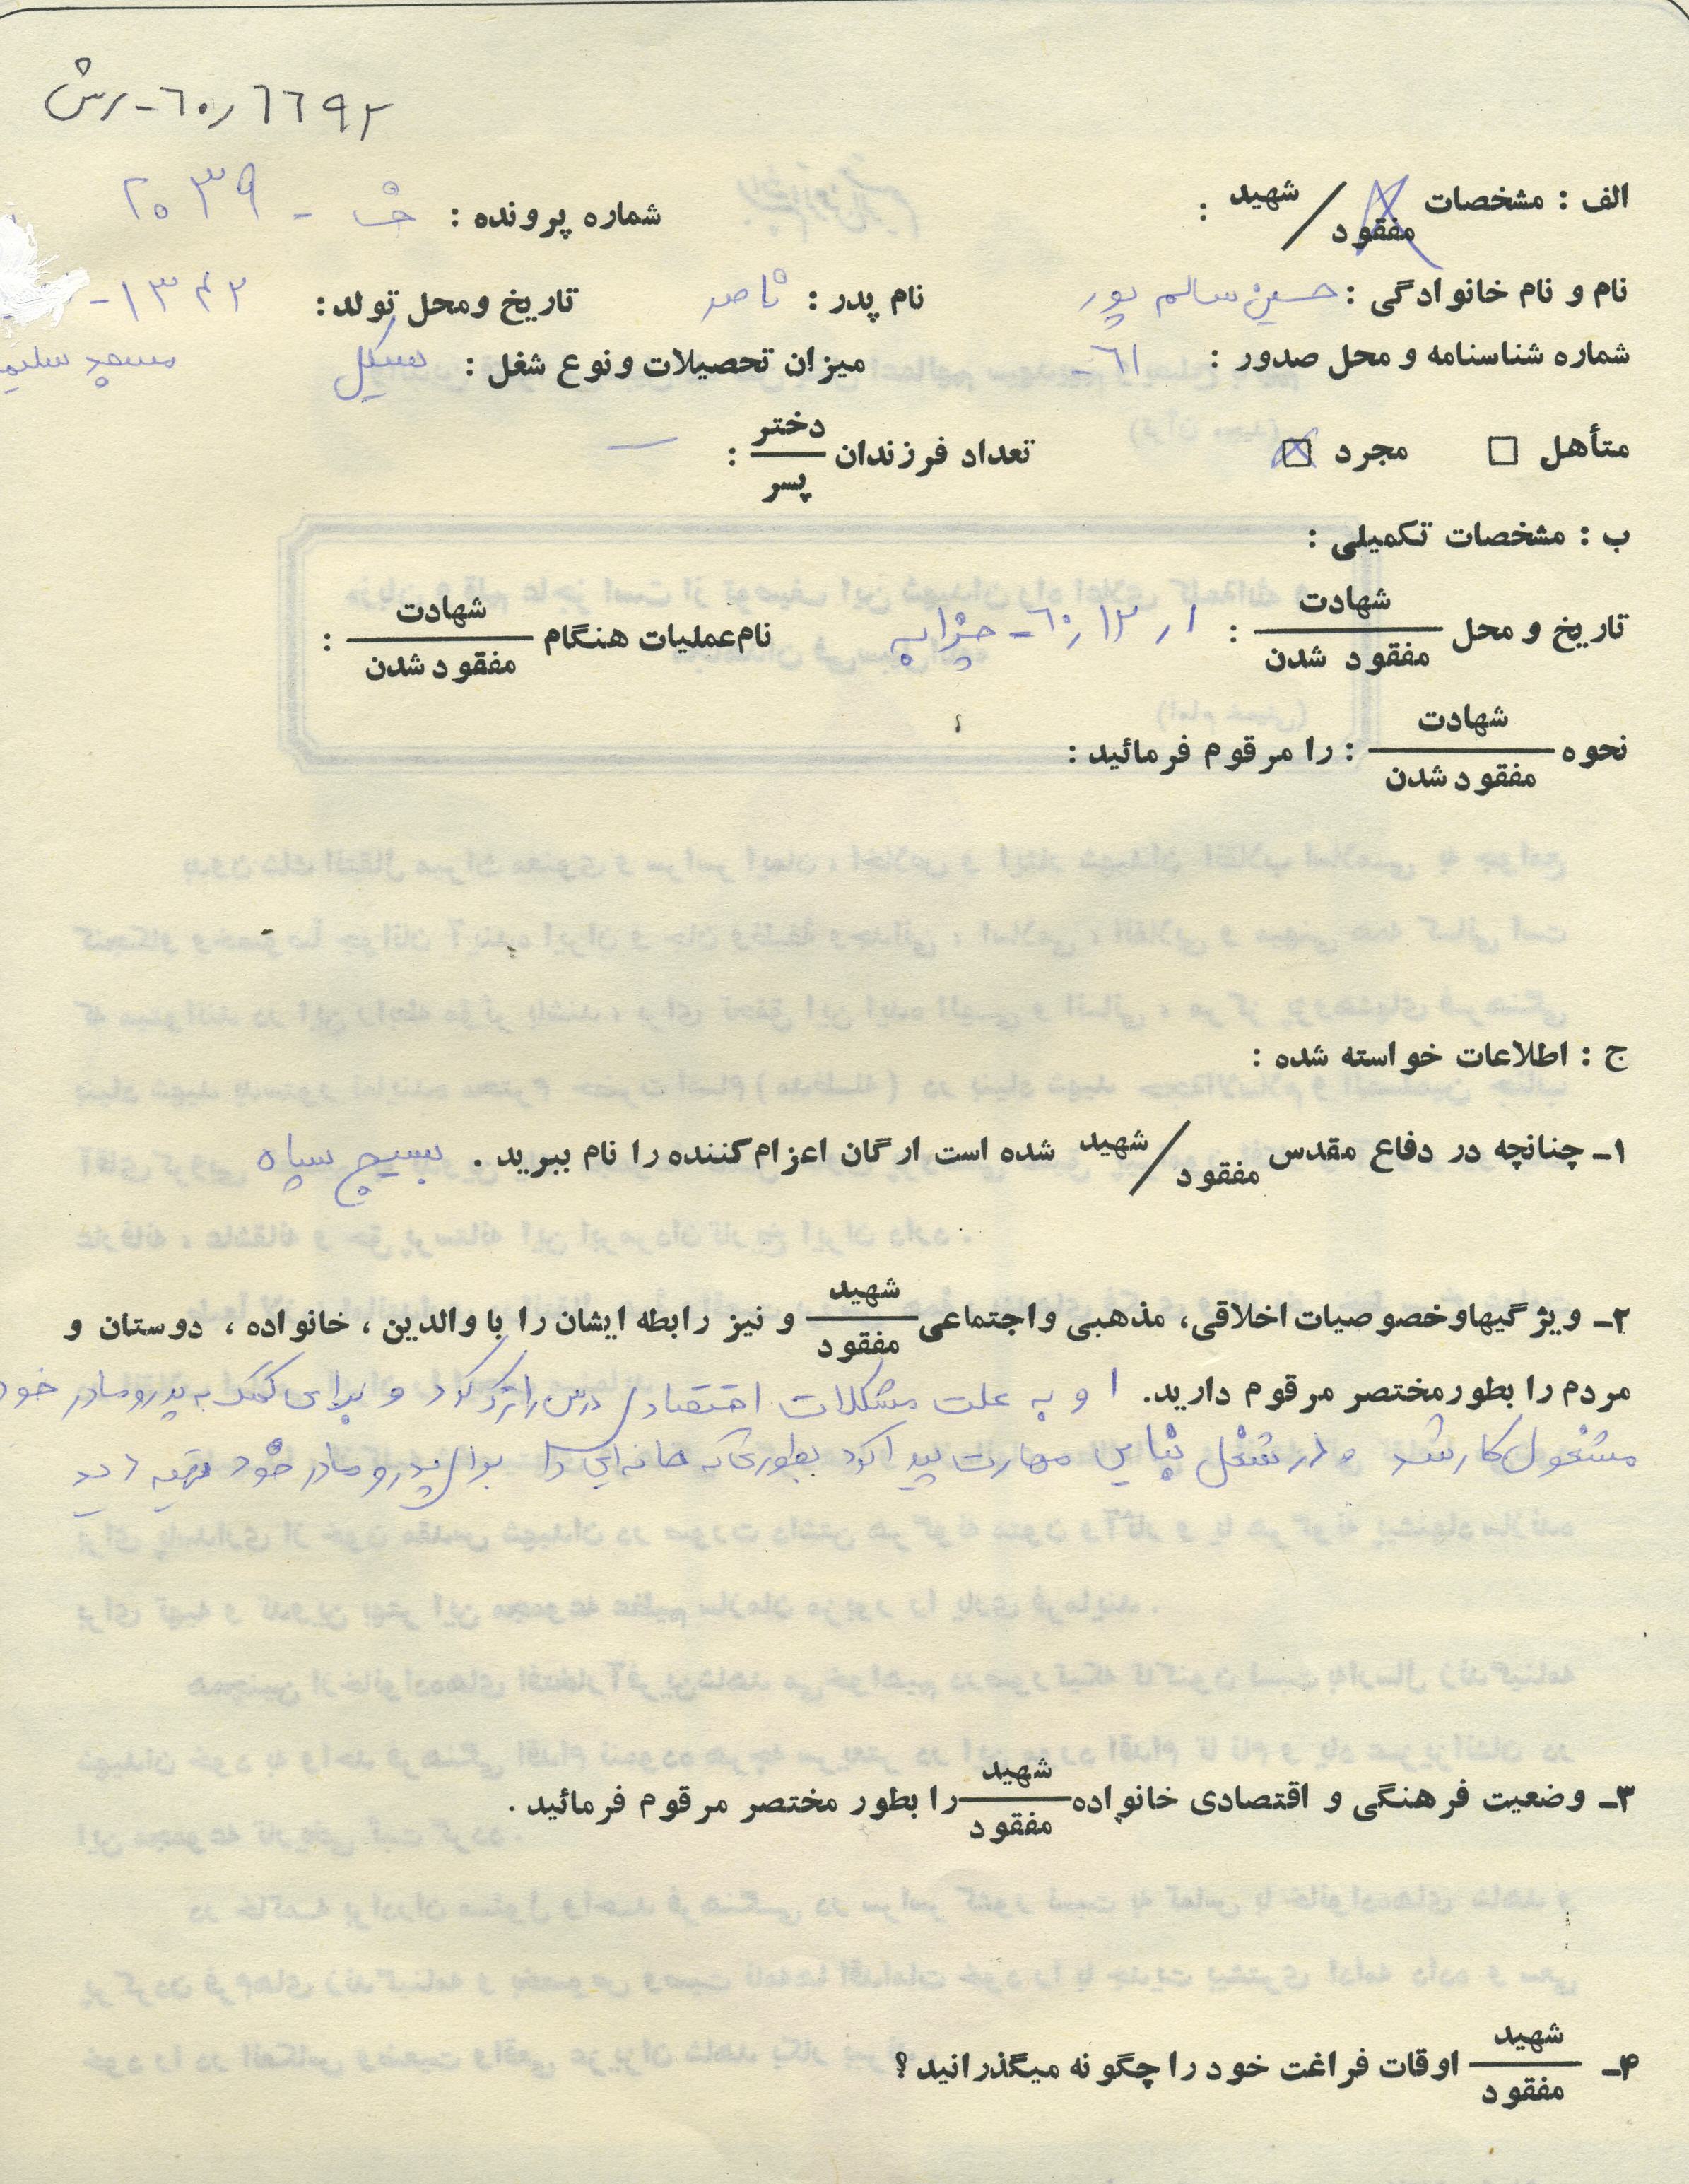 ۶۰٫۶۶۹۲-رش
الف : مشخصات شهید / مفقود :
شماره پرونده : ۲۰۳۹ -
نام و نام خانوادگی : حسین سالم پور نام پدر : ناصر تاریخ ومحل تولد : ۱۳۴۲-
شماره شناسنامه و محل صدور : ۶۱- میزان تحصیلات ونوع شغل : سیکل مسجد سلیم
متأهل □ مجرد ☒ تعداد فرزندان دختر / پسر : —
ب : مشخصات تکمیلی :
تاریخ و محل شهادت / مفقود شدن : ۶۰٫۱۲٫۱ - چزابه نام عملیات هنگام شهادت / مفقود شدن :
نحوه شهادت / مفقود شدن : را مرقوم فرمائید :
ج : اطلاعات خواسته شده :
۱- چنانچه در دفاع مقدس شهید / مفقود شده است ارگان اعزام کننده را نام ببرید . بسیج سپاه
۲- ویژگیها و خصوصیات اخلاقی، مذهبی و اجتماعی شهید / مفقود و نیز رابطه ایشان را با والدین ، خانواده ، دوستان و
مردم را بطور مختصر مرقوم دارید. او به علت مشکلات اقتصادی درس را ترک کرد و برای کمک به پدر و مادر خود
مشغول کار شد و در شغل بنایی مهارت پیدا کرد بطوری که خانه‌ای را برای پدر و مادر خود تهیه دید
۳- وضعیت فرهنگی و اقتصادی خانواده شهید / مفقود را بطور مختصر مرقوم فرمائید .
۴- شهید / مفقود اوقات فراغت خود را چگونه میگذرانید ؟